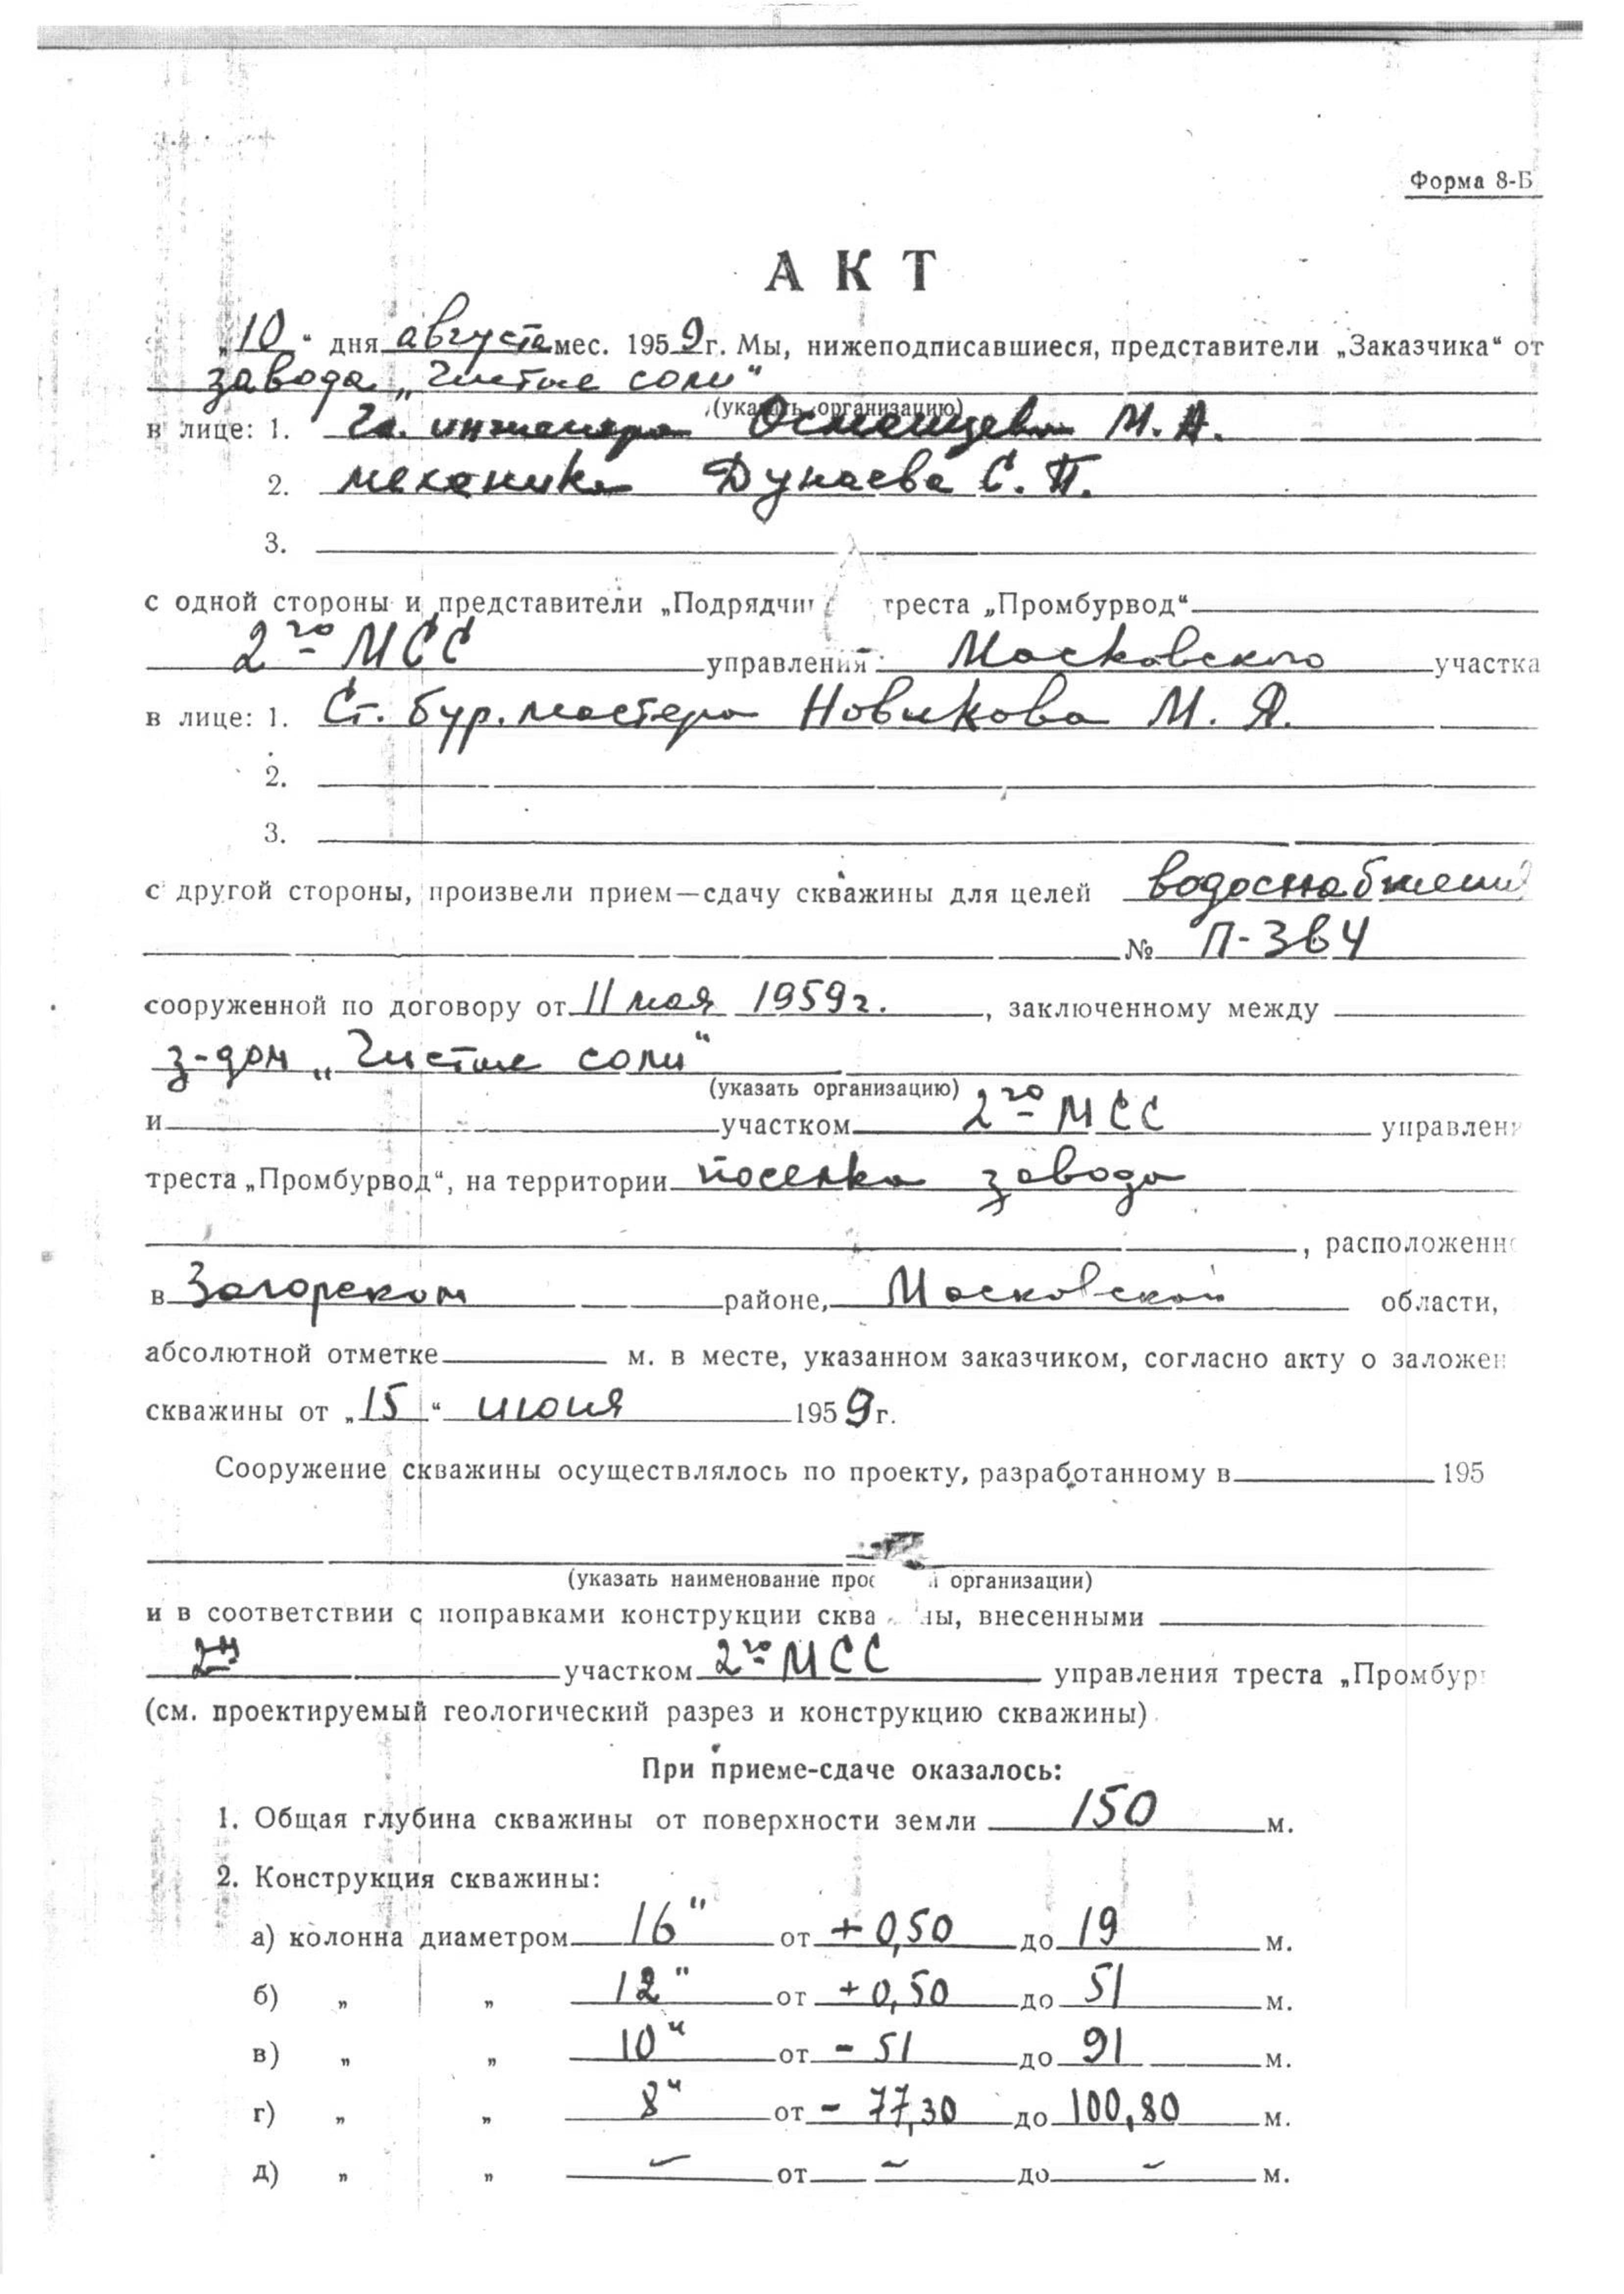 Форма 8-Б
АКТ
„10“ дня августа мес. 1959 г. Мы, нижеподписавшиеся, представители „Заказчика“ от
завода „Чистые соли“
(указать организацию)
в лице: 1. Гл. инженера М. А.
2. механика Дунаева С. П.
3.
с одной стороны и представители „Подрядчи треста „Промбурвод“
2го МСС управления Московского участка
в лице: 1. Ст. бур. мастера Новикова М. Я.
2.
3.
с другой стороны, произвели прием—сдачу скважины для целей водоснабжения
№ П-364
сооруженной по договору от 11 мая 1959 г., заключенному между
з-дом „Чистые соли“
(указать организацию)
и участком 2го МСС управлен
треста „Промбурвод“, на территории поселка завода
, расположенн
в Загорском районе, Московской области,
абсолютной отметке м. в месте, указанном заказчиком, согласно акту о заложен
скважины от „15“ июня 1959 г.
Сооружение скважины осуществлялось по проекту, разработанному в 195
(указать наименование прое й организации)
и в соответствии с поправками конструкции сква ны, внесенными
участком 2го МСС управления треста „Промбур
(см. проектируемый геологический разрез и конструкцию скважины)
При приеме-сдаче оказалось:
1. Общая глубина скважины от поверхности земли 150 м.
2. Конструкция скважины:
а) колонна диаметром 16" от + 0,50 до 19 м.
б) „ „ 12" от + 0,50 до 51 м.
в) „ „ 10" от - 51 до 91 м.
г) „ „ 8" от - 77,30 до 100,80 м.
д) „ „ – от – до – м.